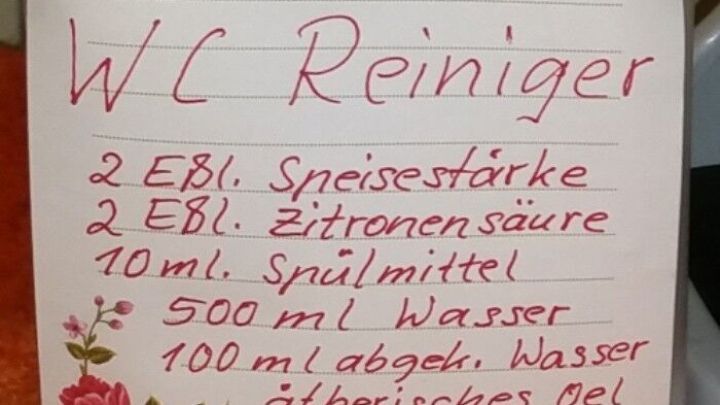 WC Reiniger
2 Eßl. Speisestärke
2 Eßl. Zitronensäure
10 ml. Spülmittel
500 ml Wasser
100 ml abgek. Wasser
ätherisches Oel